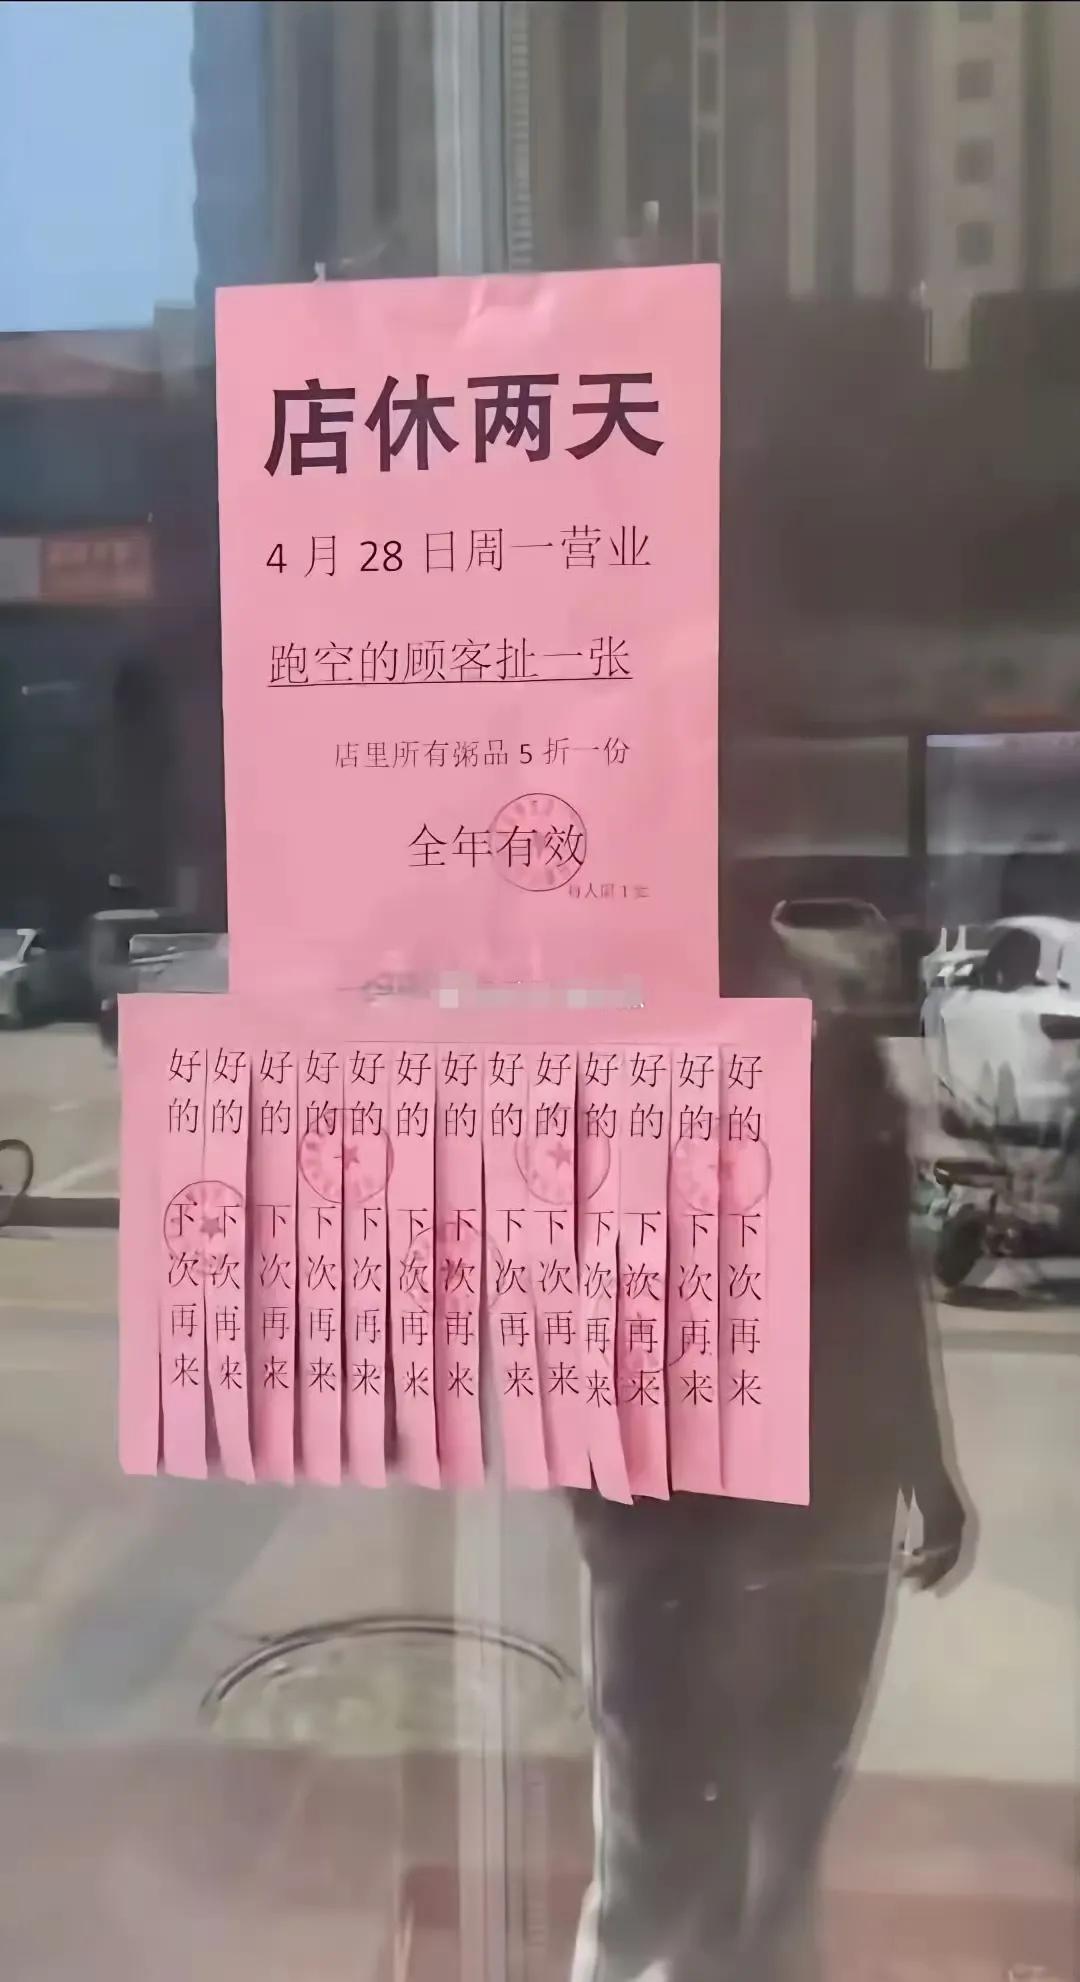 店休两天
4月28日周一营业
跑空的顾客扯一张
店里所有粥品5折一份
全年有效
每人限1张
好的 下次再来
好的 下次再来
好的 下次再来
好的 下次再来
好的 下次再来
好的 下次再来
好的 下次再来
好的 下次再来
好的 下次再来
好的 下次再来
好的 下次再来
好的 下次再来
好的 下次再来